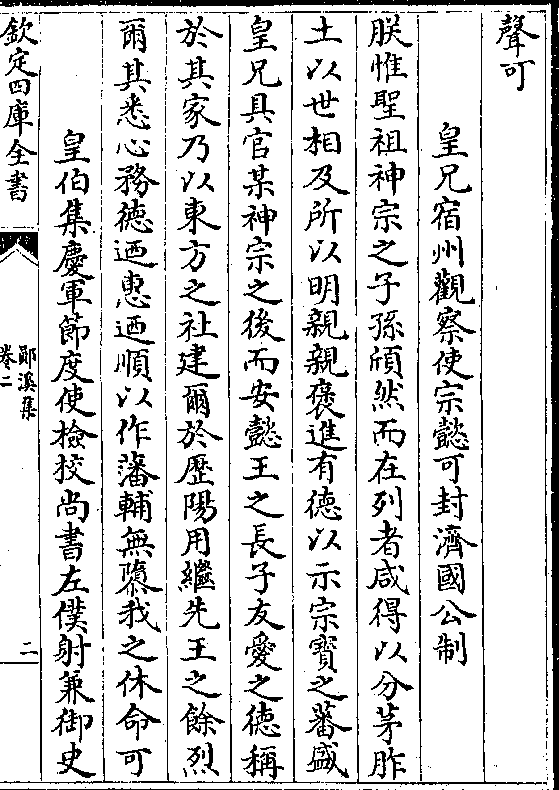 聲可
皇兄宿州觀察使宗懿可封濟國公制
朕惟聖祖神宗之子孫頎然而在列者咸得以分茅胙
土以世相及所以明親親褒進有德以示宗寳之蕃盛
皇兄具官某神宗之後而安懿王之長子友愛之德稱
於其家乃以東方之社建爾於歴陽用繼先王之餘烈
爾其悉心務德廼惠廼順以作藩輔無隳我之休命可
皇伯集慶軍節度使檢校尚書左僕射兼御史
欽定四庫全書
鄖溪集
卷二
二